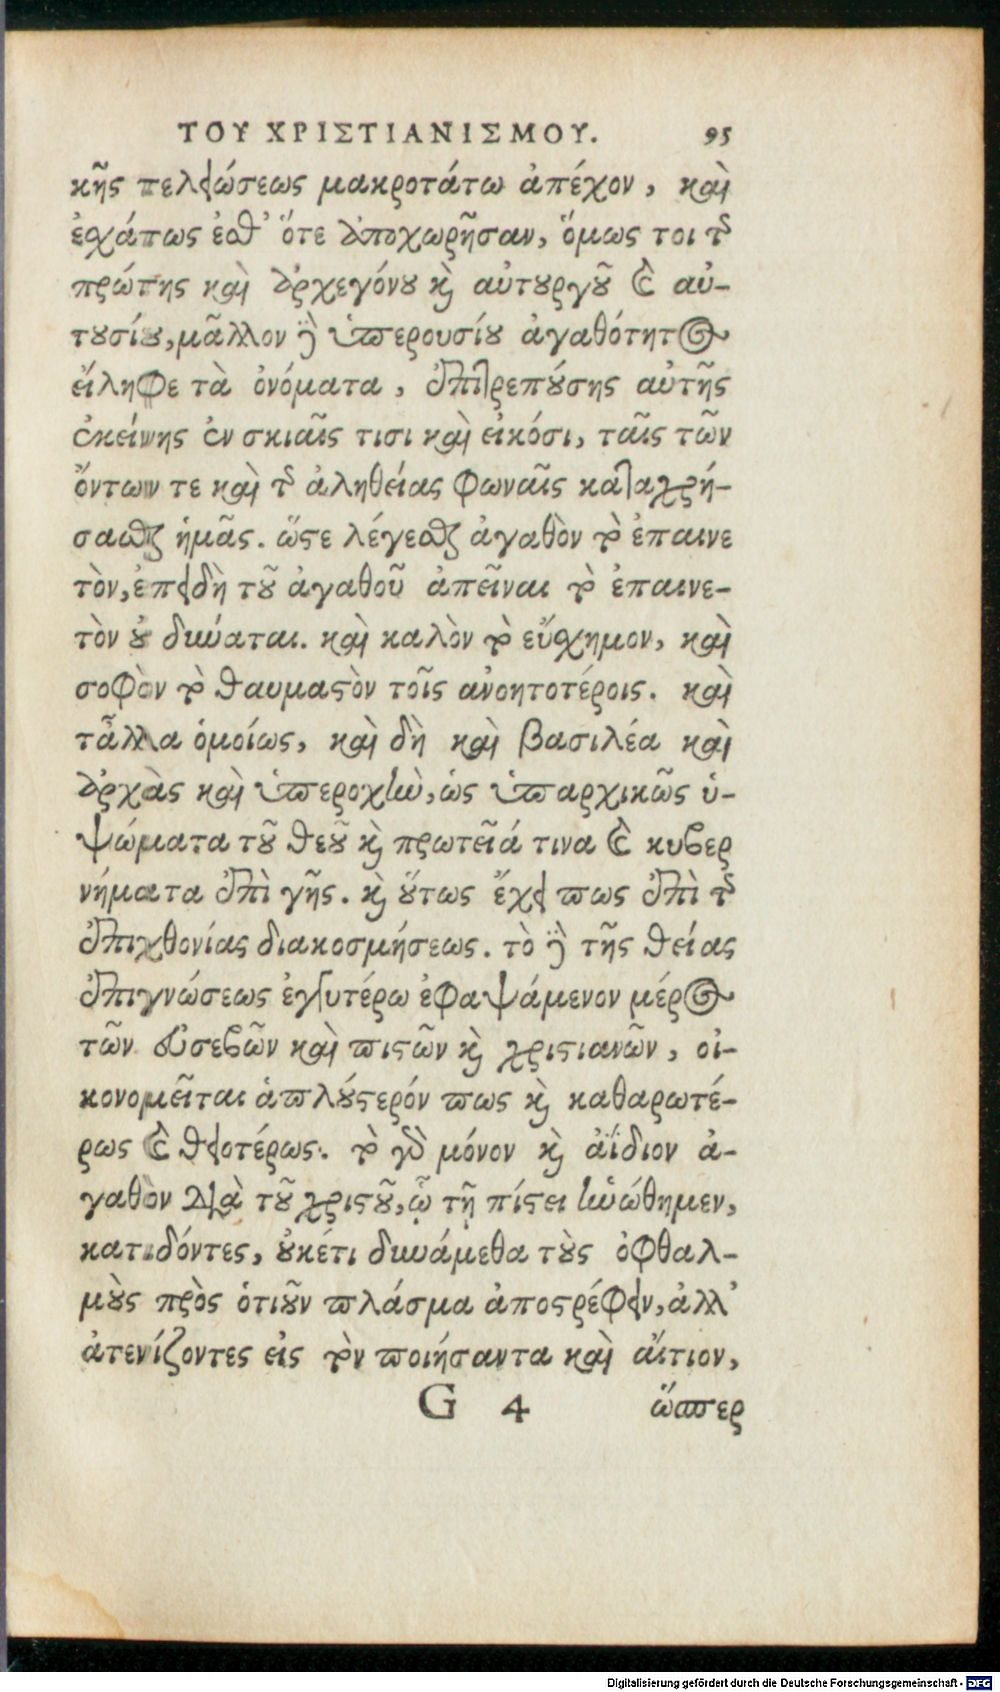 ΤΟΥ ΧΡΙΣΤΙΑΝΙΣΜΟΥ. 95
κῆς τελειώσεως μακροτάτω ἀπέχον, καὶ
ἐχάτως ἐσθ' ὅτε ἀποχωρῆσαν, ὅμως τοι τῆς
πρώτης καὶ ἀρχεγόνου καὶ αὐτουργοῦ καὶ αὐ-
τουσίου, μᾶλλον δὲ ὑπερουσίου ἀγαθότητος
εἴληφε τὰ ὀνόματα, ἐπιτρεπούσης αὐτῆς
ἐκείνης ἐν σκιαῖς τισι καὶ εἰκόσι, ταῖς τῶν
ὄντων τε καὶ τῆς ἀληθείας φωναῖς καταχρή-
σασθαι ἡμᾶς. ὥστε λέγεσθαι ἀγαθὸν τὸ ἐπαινε
τὸν, ἐπειδὴ τοῦ ἀγαθοῦ ἀπεῖναι τὸ ἐπαινε-
τὸν οὐ δύναται. καὶ καλὸν τὸ εὔχημον, καὶ
σοφὸν τὸ θαυμαστὸν τοῖς ἀνοητοτέροις. καὶ
τἆλλα ὁμοίως, καὶ δὴ καὶ βασιλέα καὶ
ἀρχὰς καὶ ὑπεροχὴν, ὡς ὑπαρχικῶς ὑ-
ψώματα τοῦ θεοῦ καὶ πρωτεῖά τινα καὶ κυβερ
νήματα ἐπὶ γῆς. καὶ οὕτως ἔχει πως ἐπὶ τῆς
ἐπιχθονίας διακοσμήσεως. τὸ δὲ τῆς θείας
ἐπιγνώσεως ἐγγυτέρω ἐφαψάμενον μέρος
τῶν εὐσεβῶν καὶ πιστῶν καὶ χριστιανῶν, οἰ-
κονομεῖται ἁπλούστερόν πως καὶ καθαρωτέ-
ρως καὶ θειοτέρως. τὸ γὰρ μόνον καὶ ἀΐδιον ἀ-
γαθὸν διὰ τοῦ χριστοῦ, ᾧ τῇ πίστει ἡνώθημεν,
κατιδόντες, οὐκέτι δυνάμεθα τοὺς ὀφθαλ-
μοὺς πρὸς ὁτιοῦν πλάσμα ἀποστρέφειν, ἀλλ'
ἀτενίζοντες εἰς τὸν ποιήσαντα καὶ αἴτιον,
G 4 ὥσπερ
Digitalisierung gefördert durch die Deutsche Forschungsgemeinschaft - DFG